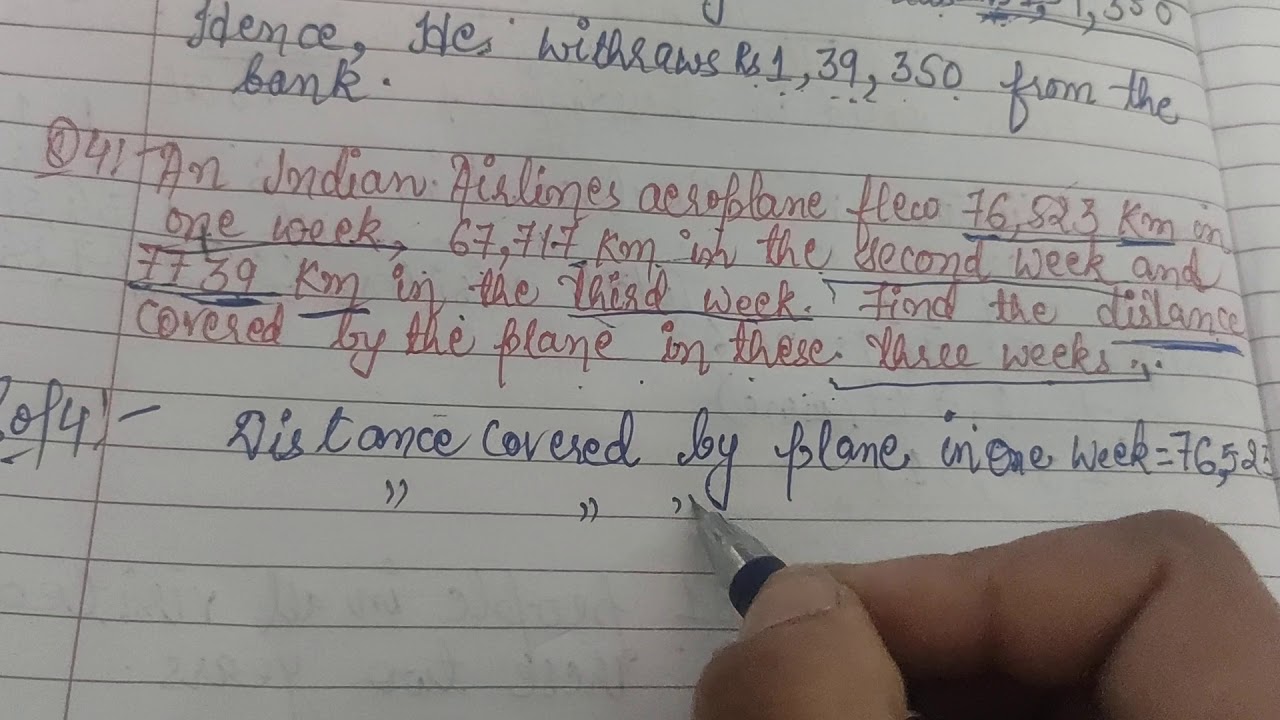 1,350
Hence, He withraws Rs 1,39,350 from the
bank.
Q4:- An Indian Airlines aeroplane flew 76,523 Km in
one week, 67,717 Km in the second week and
7739 Km in the third week. Find the distance
covered by the plane in these three weeks.
of 4:- Distance covered by plane in one week=76,523
" " "